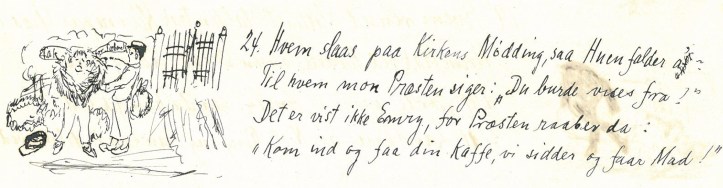 24. Hvem slaas paa Kirkens Mödding, saa Huen falder af –
Til hvem mon Præsten siger: „Du burde vises fra!"
Det er vist ikke Emry, for Præsten raaber da:
„Kom ind og faa din Kaffe, vi sidder og faar Mad!"